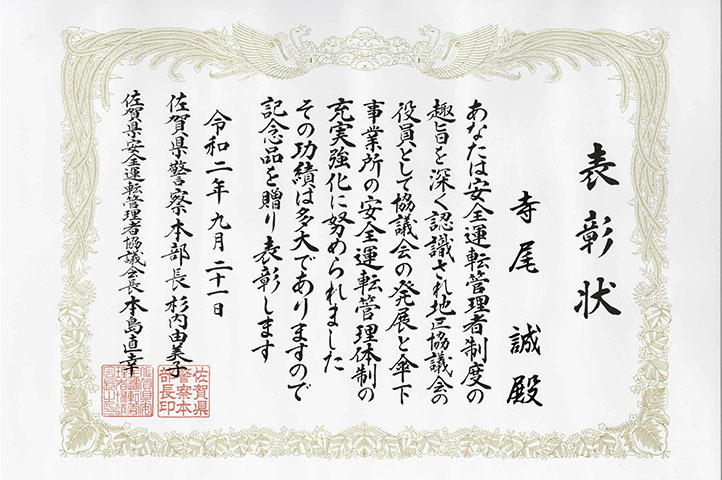 表彰状
寺尾 誠殿
あなたは安全運転管理者制度の
趣旨を深く認識され地区協議会の
役員として協議会の発展と傘下
事業所の安全運転管理体制の
充実強化に努められました
その功績は多大でありますので
記念品を贈り表彰します
令和二年九月二十一日
佐賀県警察本部長 杉内由美子
佐賀県安全運転管理者協議会長 本島直幸
佐賀県
警察本
部長印